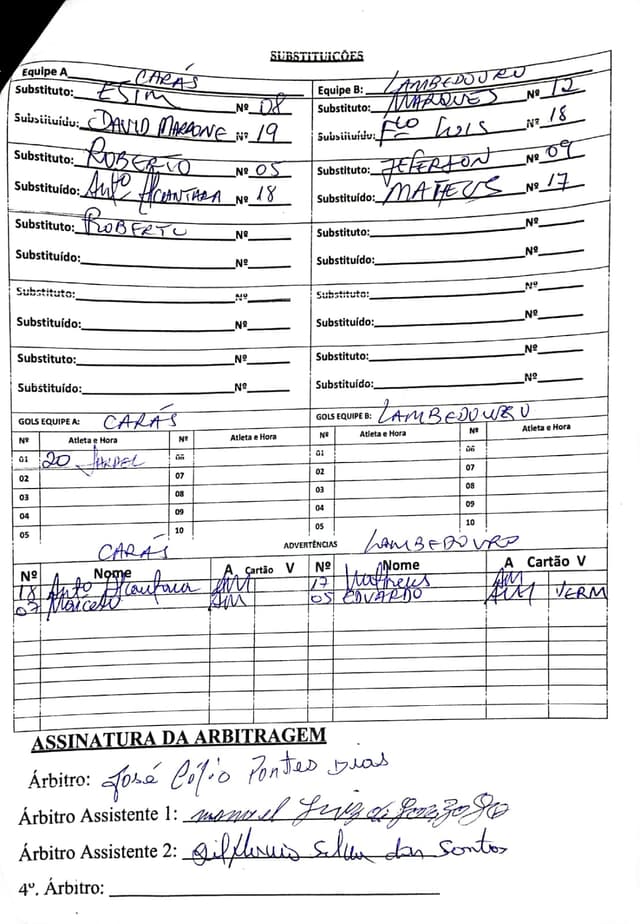 SUBSTITUICÕES
Equipe A CARÁS
Substituto: ESIM Nº 08
Substituído: DAVID MARRONE Nº 19
Substituto: ROBERTO Nº 05
Substituído: Antº Alcantara Nº 18
Substituto: ROBERTO Nº
Substituído: Nº
Substituto: Nº
Substituído: Nº
Substituto: Nº
Substituído: Nº
Equipe B: LAMBEDOURO
Substituto: MARQUES Nº 12
Substituído: Fco LUIS Nº 18
Substituto: JEFERSON Nº 09
Substituído: MATHEUS Nº 17
Substituto: Nº
Substituído: Nº
Substituto: Nº
Substituído: Nº
Substituto: Nº
Substituído: Nº
GOLS EQUIPE A: CARÁS
Nº Atleta e Hora Nº Atleta e Hora
01 20 JARDEL 06
02 07
03 08
04 09
05 10
GOLS EQUIPE B: LAMBEDOURO
Nº Atleta e Hora Nº Atleta e Hora
01 06
02 07
03 08
04 09
05 10
CARÁS ADVERTÊNCIAS LAMBEDOURO
Nº Nome A Cartão V Nº Nome A Cartão V
18 Antº Alcantara AM 17 Matheus AM
07 AM 05 EDUARDO AM VERM
ASSINATURA DA ARBITRAGEM
Árbitro: José Pontes Dias
Árbitro Assistente 1: manoel Luiz de
Árbitro Assistente 2: Silva dos Santos
4º. Árbitro: